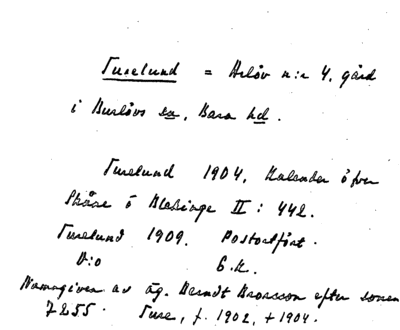 Turelund = Arlöv n:r 4, gård
i Burlövs sn, Bara hd.
Turelund 1904, Kalender öfver
Skåne o Blekinge II: 442.
Turelund 1909. Postortsfört.
D:o G.K.
Namngiven av äg. Berndt Aronsson efter sonen
7255. Ture, f. 1902, + 1904.